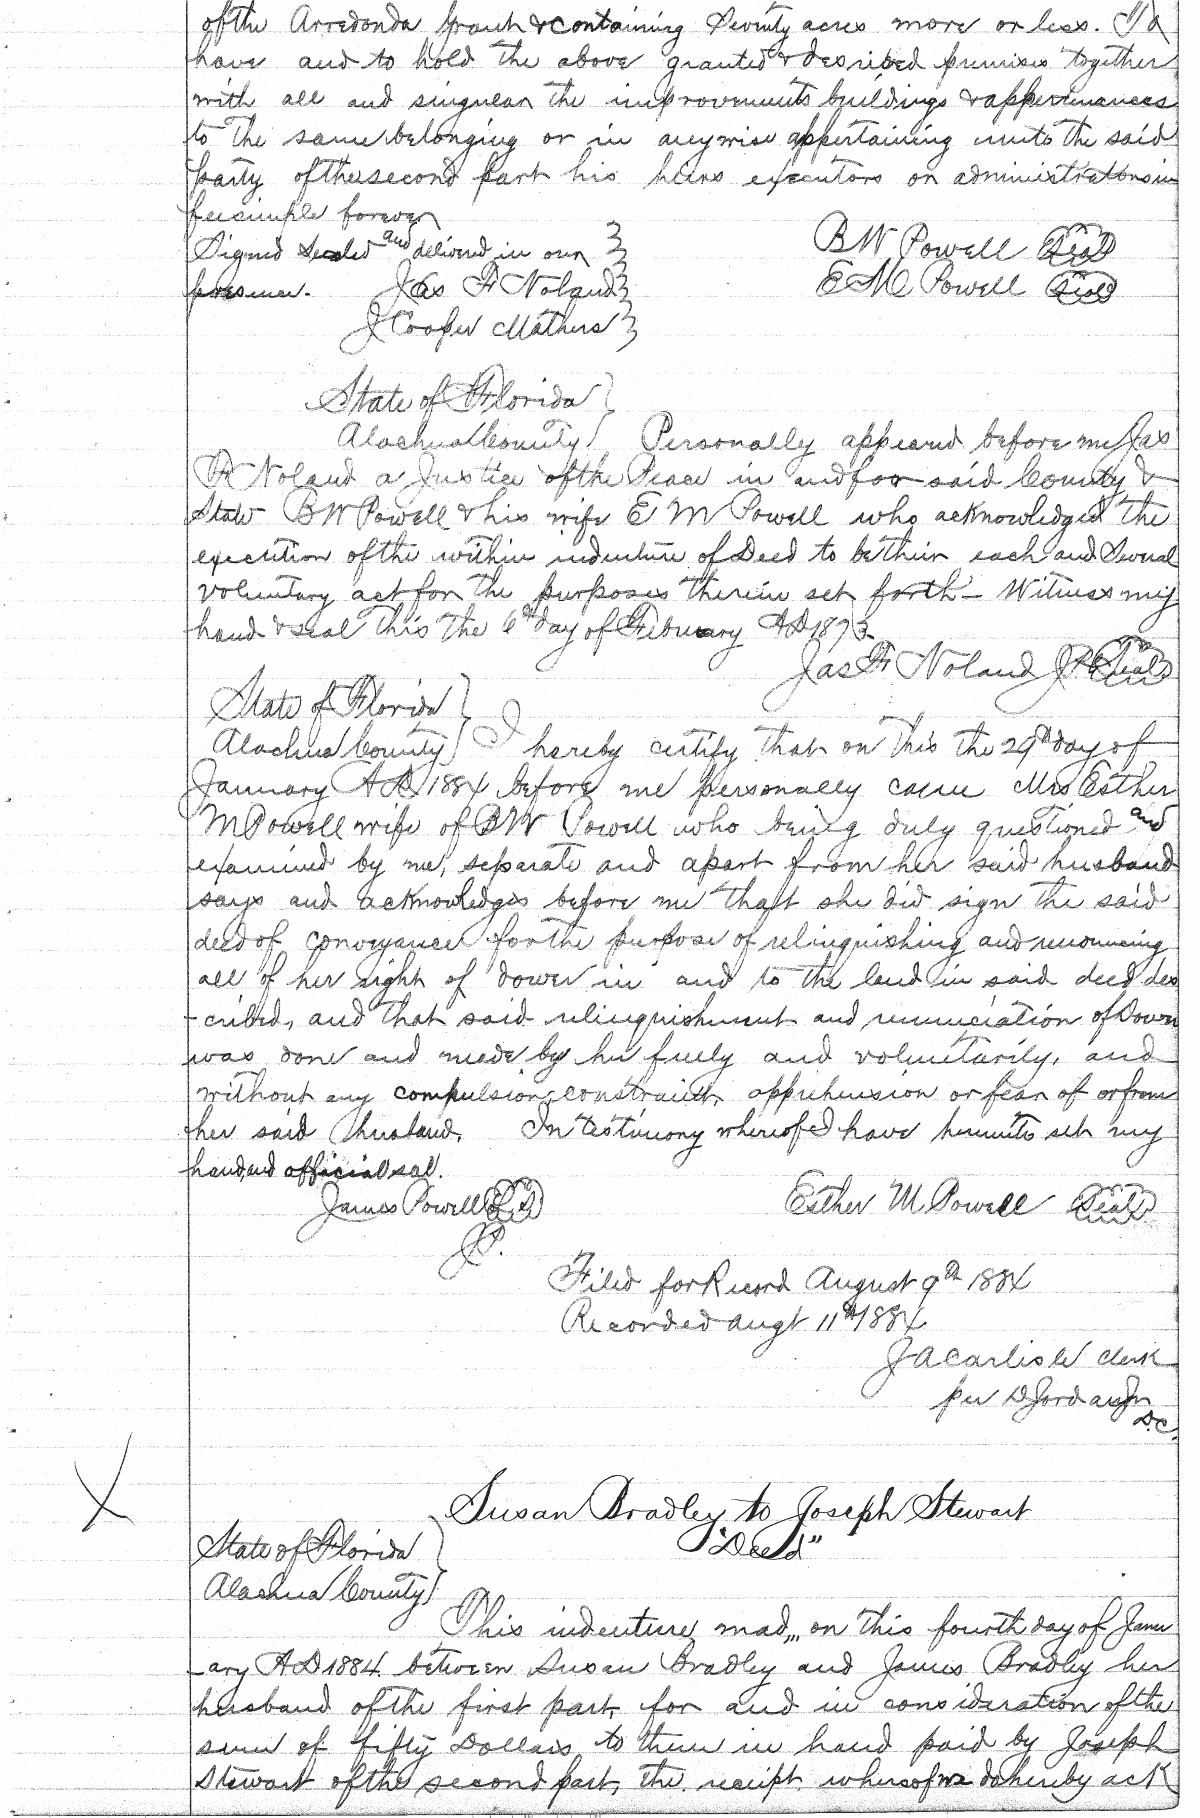 of the Arredonda Grant & containing Seventy acres more or less. To
have and to hold the above granted & described premises together
with all and singular the improvements buildings & appertenances
to the same belonging or in anywise appertaining unto the said
party of the second part his heirs executors or administrators in
feesimple forever
Signed Sealed and delivered in our
presence. Jas F Noland
J Cooper Mathers
BW Powell Seal
E M Powell Seal
State of Florida
Alachua County Personally appeared before me Jas
F Noland a Justice of the Peace in and for said County &
State BW Powell & his wife E M Powell who acknowledged the
execution of the within indenture of Deed to be their each and Several
voluntary act for the purposes therein set forth - Witness my
hand & seal this the 6th day of February AD 1873
Jas F Noland JP Seal
State of Florida
Alachua County I hereby certify that on this the 29th day of
January AD 1884 before me personally came Mrs Esther
M Powell wife of BW Powell who being duly questioned and
examined by me, separate and apart from her said husband
says and acknowledges before me that she did sign the said
deed of conveyance for the purpose of relinquishing and renouncing
all of her right of dower in and to the land in said deed des
-cribed, and that said relinquishment and renunciation of Dower
was done and made by her freely and voluntarily, and
without any compulsion, constraint, apprehension or fear of or from
her said husband. In testimony whereof I have hereunto set my
hand and official seal.
James Powell L.S.
J.P.
Esther M. Powell Seal
Filed for Record August 9th 1884
Recorded augt 11th 1884
J A Carlisle Clerk
per D Jordan Jr
D.C.
Susan Bradley to Joseph Stewart
"Deed"
State of Florida
Alachua County
This indenture mad,,, on this fourth day of Janu
-ary AD 1884 between Susan Bradley and James Bradley her
husband of the first part, for and in consideration of the
sum of fifty Dollars to them in hand paid by Joseph
Stewart of the second part, the receipt whereof we do hereby ack